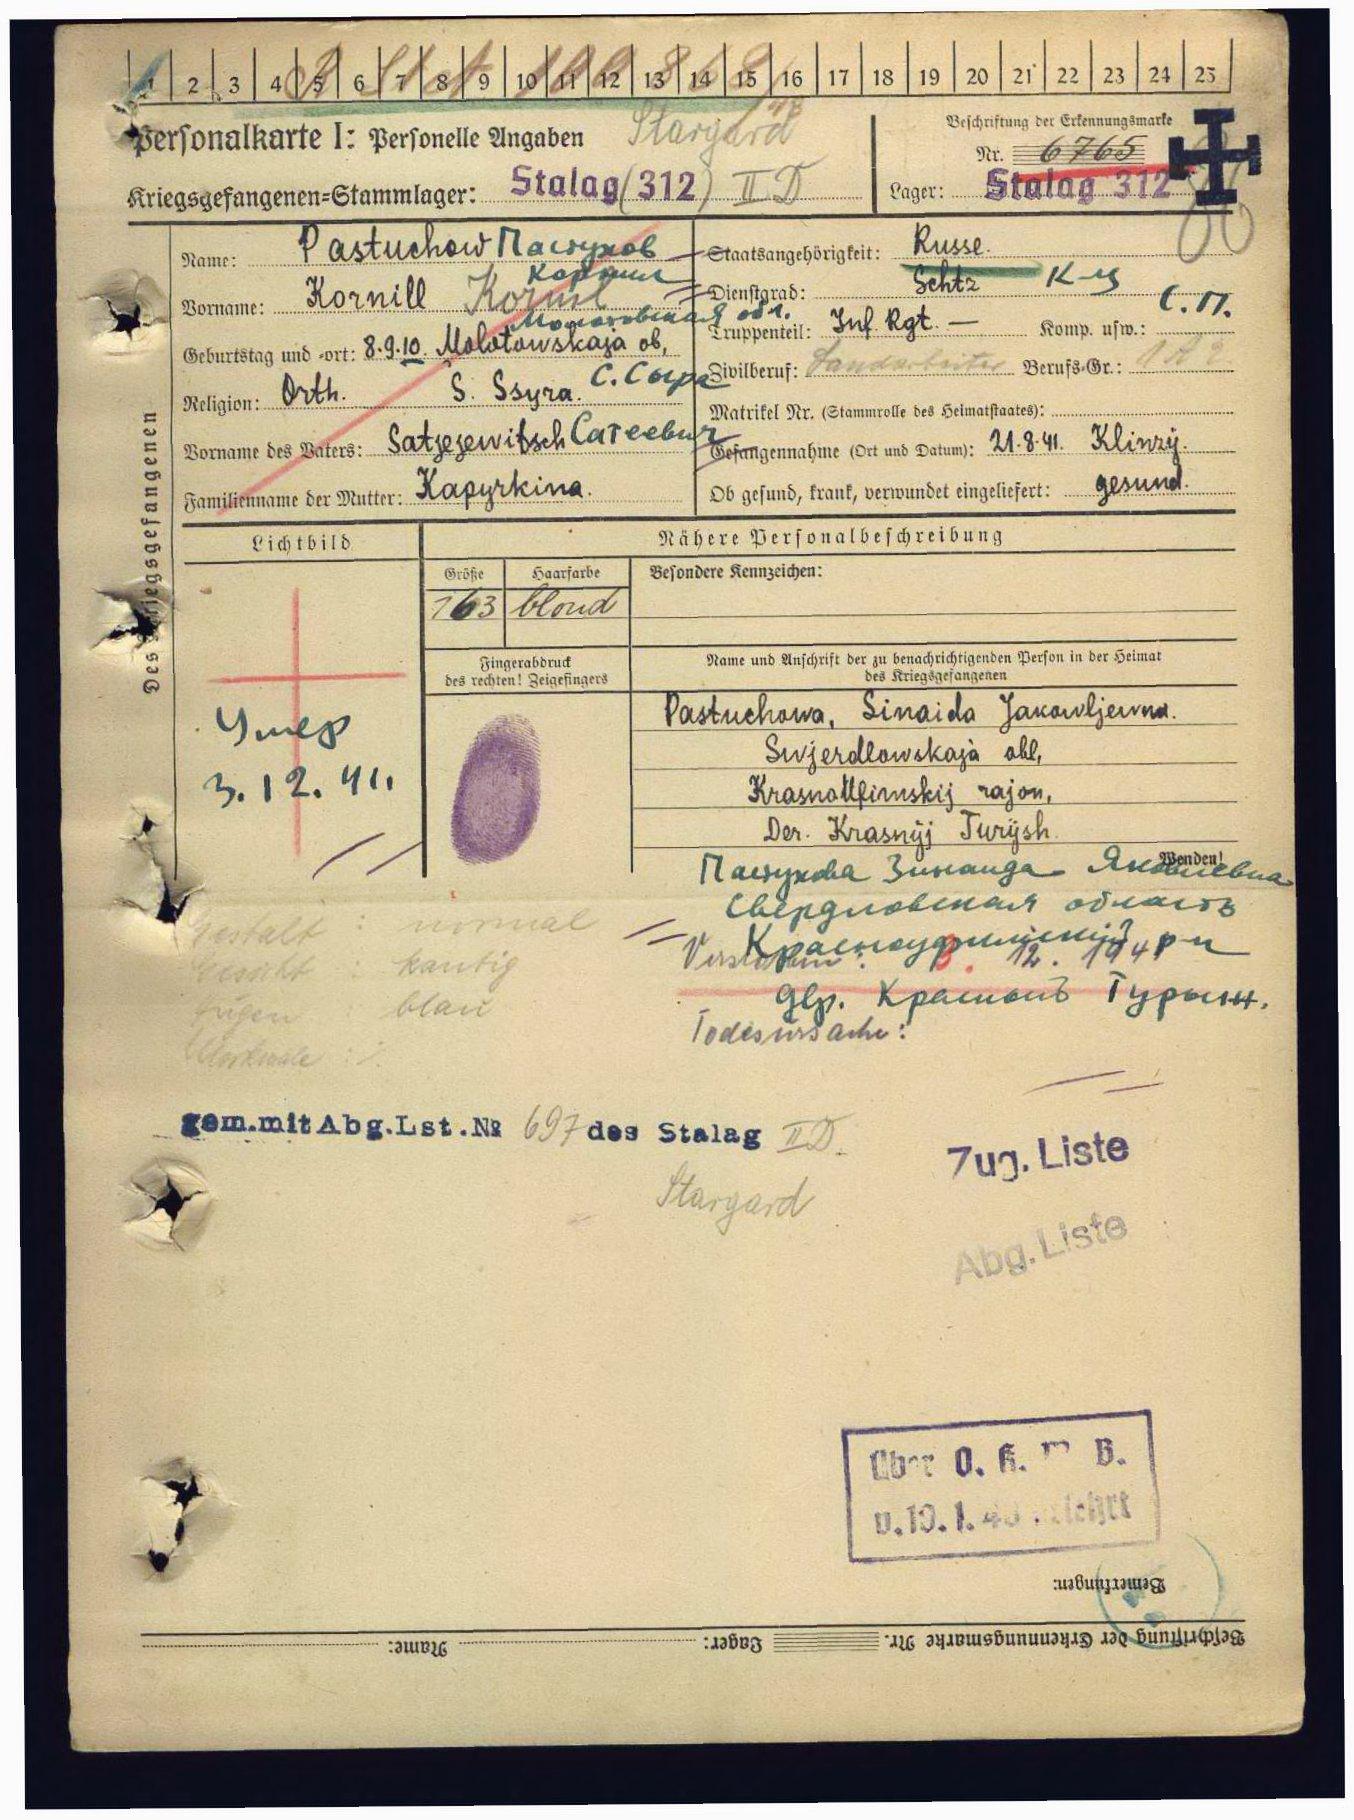 1 2 3 4 5 6 7 8 9 10 11 12 13 14 15 16 17 18 19 20 21 22 23 24 25
Personalkarte I: Personelle Angaben
Stargard
Beschriftung der Erkennungsmarke
Nr. 6765
Kriegsgefangenen-Stammlager: Stalag (312) II D
Lager: Stalag 312
Des Kriegsgefangenen
Name: Pastuchow Пастухов
Staatsangehörigkeit: Russe.
Vorname: Kornill Kornil Корнил
Dienstgrad: Schtz К-ц
Молотовская обл.
С.П.
Geburtstag und -ort: 8.9.10. Molotowskaja ob,
Truppenteil: Inf. Rgt. — Komp. usw.:
Religion: Orth. S. Ssyra. С. Сыра
Zivilberuf: Landarbeiter Berufs-Gr.:
Matrikel Nr. (Stammrolle des Heimatstaates):
Vorname des Vaters: Satjejewitsch Сатеевич
Gefangennahme (Ort und Datum): 21.8.41. Klinzÿ.
Familienname der Mutter: Kapyrkina.
Ob gesund, krank, verwundet eingeliefert: gesund.
Lichtbild
Nähere Personalbeschreibung
Größe Haarfarbe Besondere Kennzeichen:
163 blond
Fingerabdruck
des rechten! Zeigefingers
Name und Anschrift der zu benachrichtigenden Person in der Heimat
des Kriegsgefangenen
Pastuchowa, Sinaida Jakowljewna.
Swjerdlowskaja obl,
KrasnoUfimskij rajon,
Der. Krasnÿj Turÿsh.
Умер
3.12.41.
Wenden!
Пастухова Зинаида Яковлевна
Свердловская область
Красноуфимский р-н
дер. Красный Турыш.
Gestalt : normal
Gesicht : kantig
Augen blau
Merkmale : ·/.
Verstorben: 3. 12. 1941
Todesursache:
gem.mit Abg.Lst.№ 697 des Stalag II D.
Stargard
Zug. Liste
Abg. Liste
über O. K. W. B.
v.19.1.43
Bemerkungen:
Beschriftung der Erkennungsmarke Nr. Lager: Name: